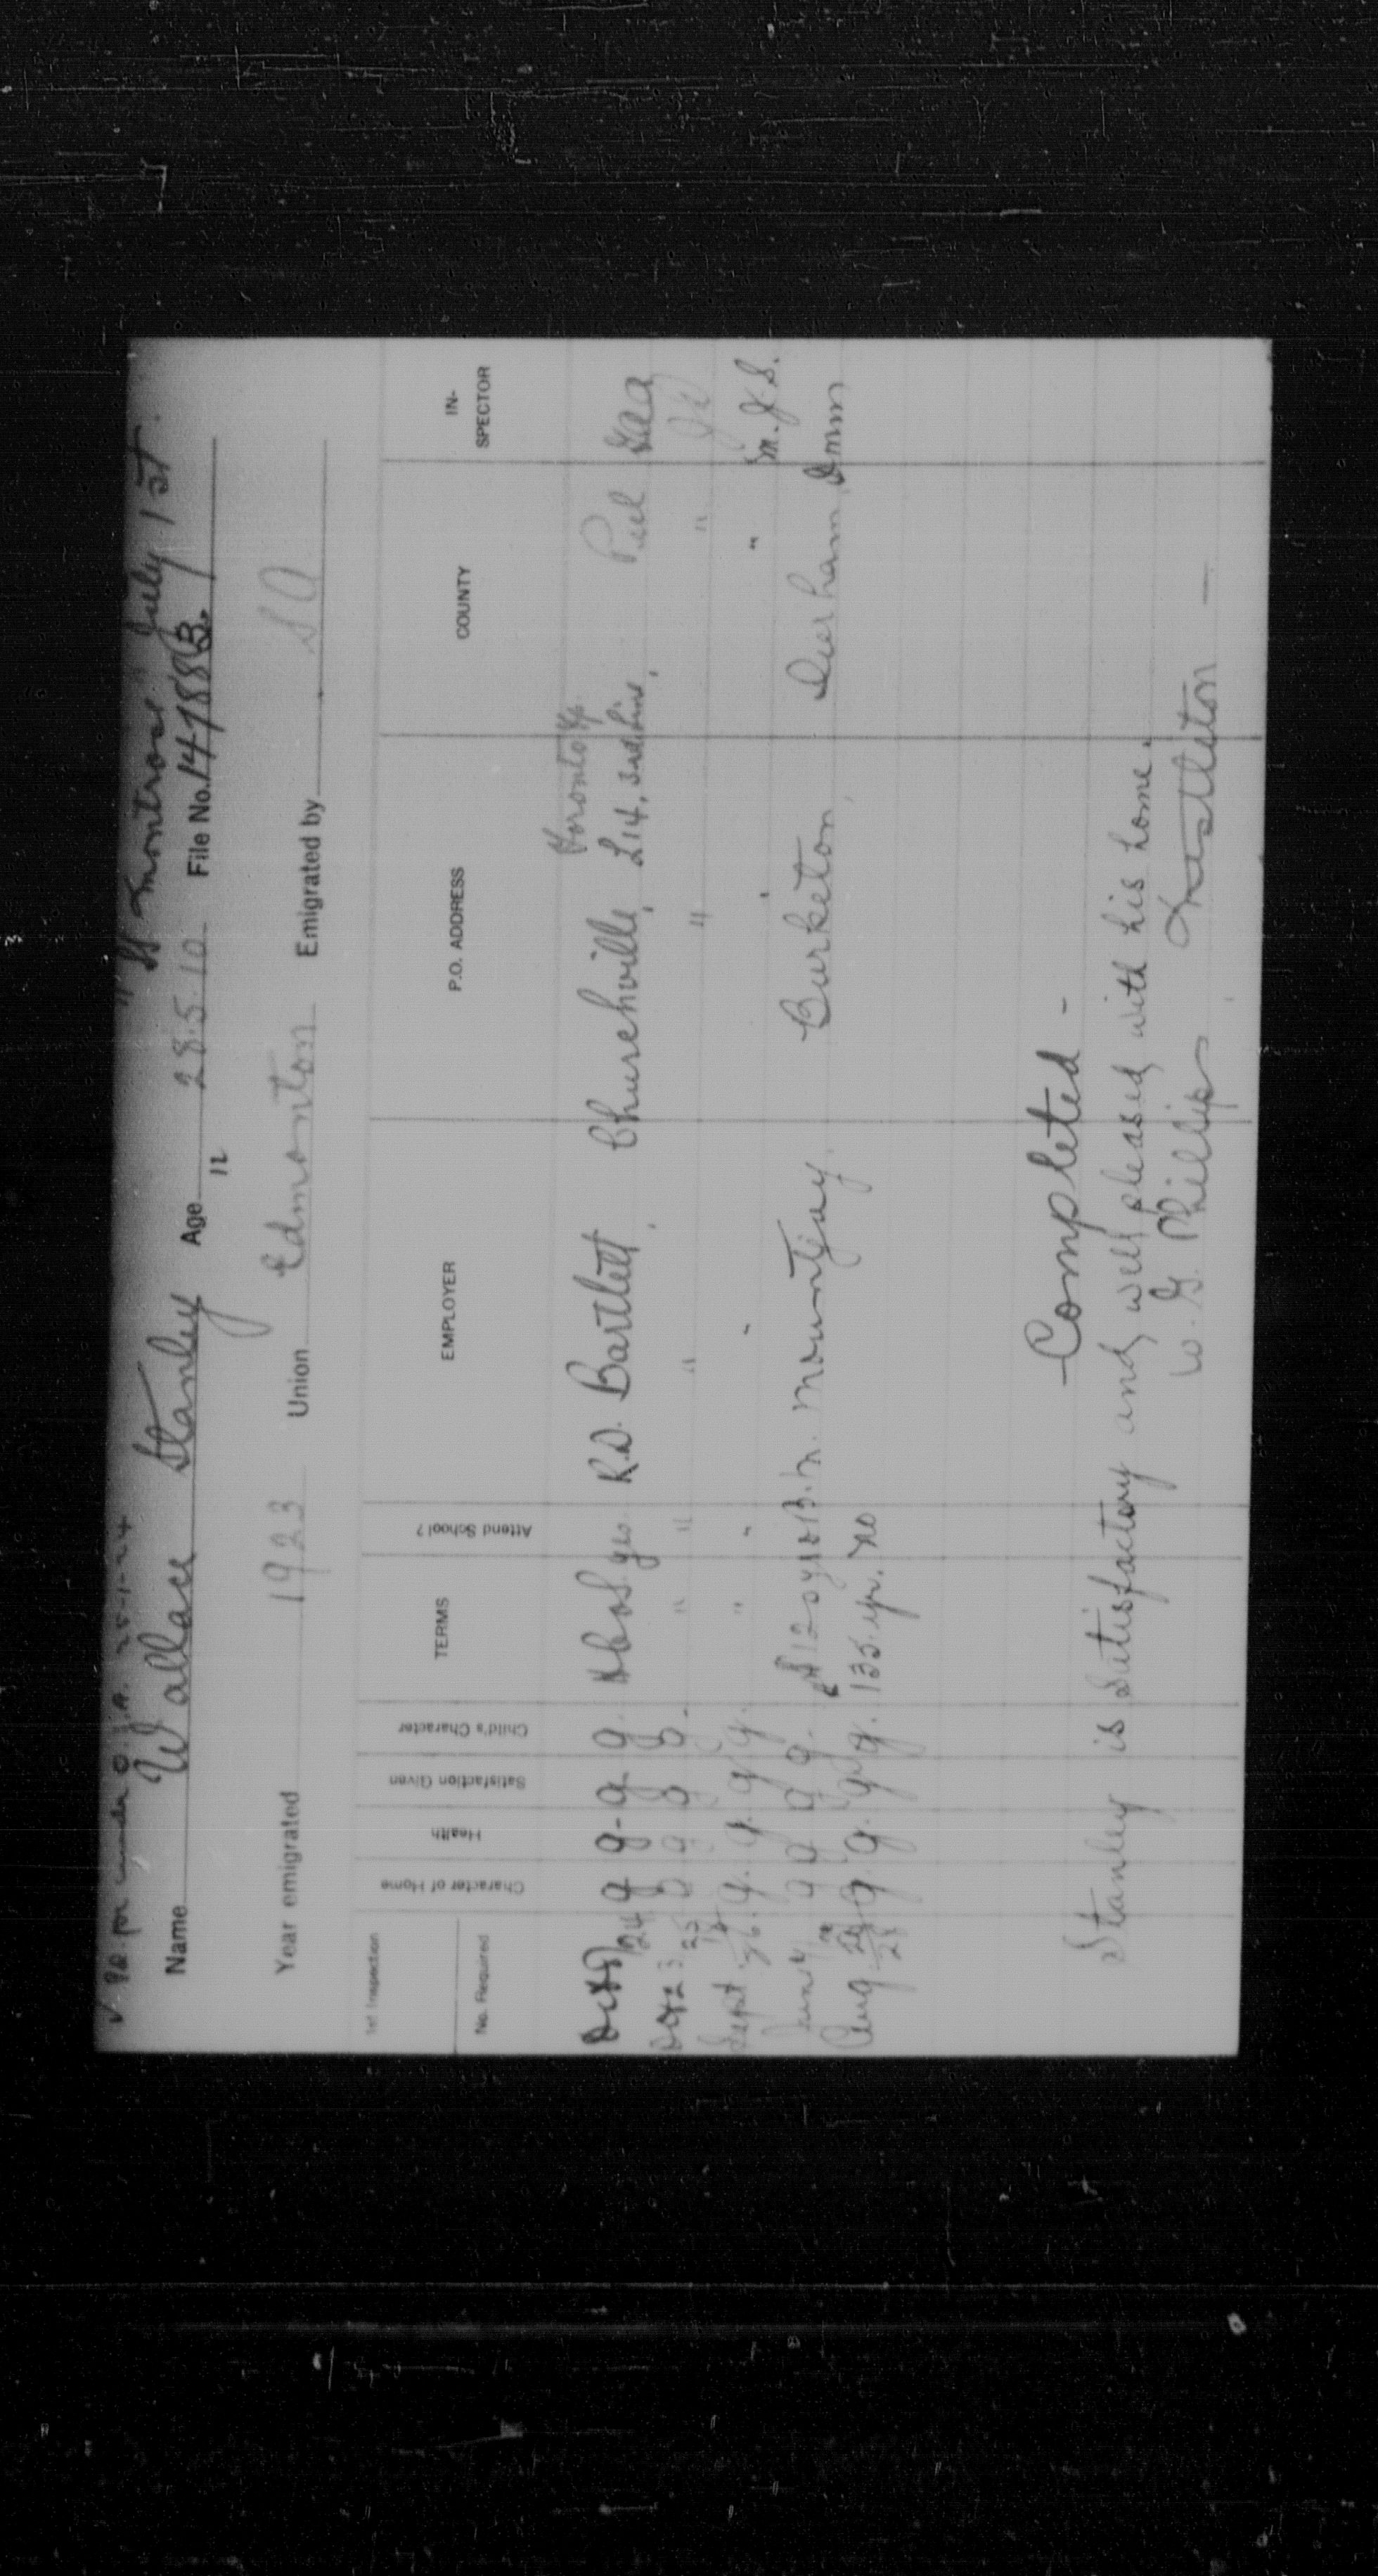 "SS Montrose" July 1st.
Name Wallace Stanley Age 28.5.10 File No. 147883.
12
Year emigrated 1923 Union Edmonton Emigrated by SA
1st Inspection
No. Required
Character of Home
Health
Satisfaction Given
Child's Character
TERMS
Attend School?
EMPLOYER
P.O. ADDRESS
COUNTY
IN-
SPECTOR
Toronto Tp
24 g g- g g. yes. R.D. Bartlett, Churchville, L14, 3rd Line, Peel
Oct 23 25 g g g g. " " " " "
Sept 26. g. g. g g. " " " " " M.J.S.
June g g g g. $120 yr no B. M. Mountjoy. Burketon, Durham,
Aug 28 28 g. g. g. g. 135. yr. no
Completed -
Stanley is satisfactory and well pleased with his home.
W. G. Phillips Nestleton —